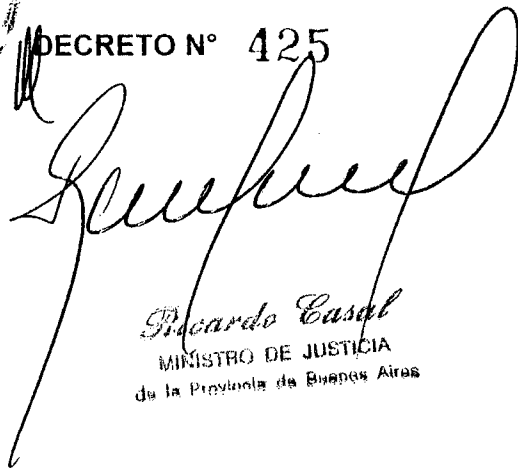 DECRETO N° 425
Ricardo Casal
MINISTRO DE JUSTICIA
de la Provincia de Buenos Aires